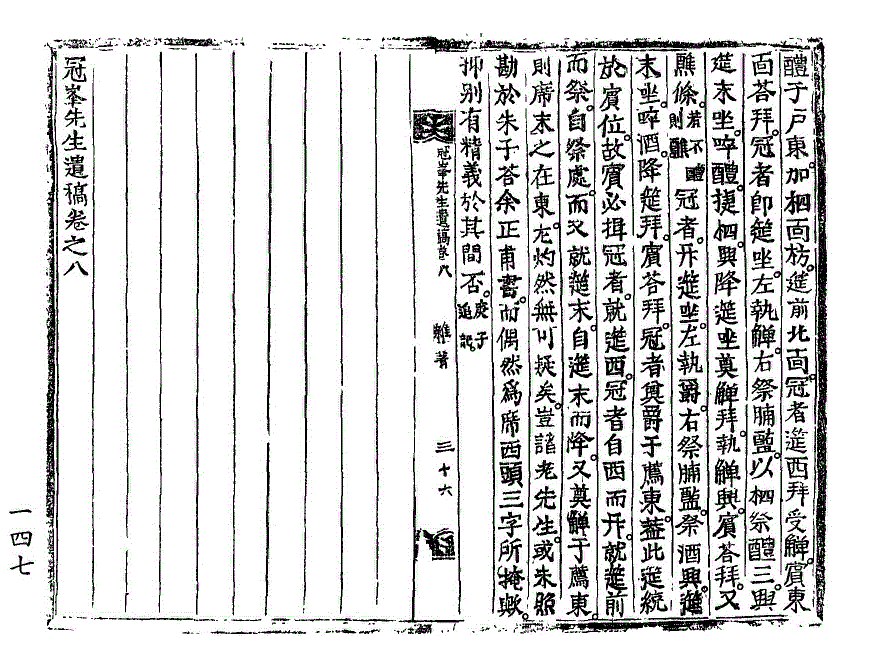 醴于戶東加柶面枋筵前北面冠者筵西拜受觶賓東
面荅拜冠者即筵坐左執觶右祭脯醢以柶祭醴三興
筵末坐啐醴捷柶興降筵坐奠觶拜執觶興賓荅拜又
醮條若不醴則醮冠者升筵坐左執爵右祭脯醢祭酒興筵
末坐啐酒降筵拜賓荅拜冠者奠爵于薦東盖此筵統
於賓位故賓必揖冠者就筵西冠者自西而升就筵前
而祭自祭處而又就筵末自筵末而降又奠觶于薦東
則席末之在東尤灼然無可疑矣豈諸老先生或未照
勘於朱子荅余正甫書而偶然爲席西頭三字所掩歟
抑别有精義於其間否庚子追記
冠峯先生遺稿卷八 雜著 三十六
冠峯先生遺稿卷之八
一四七